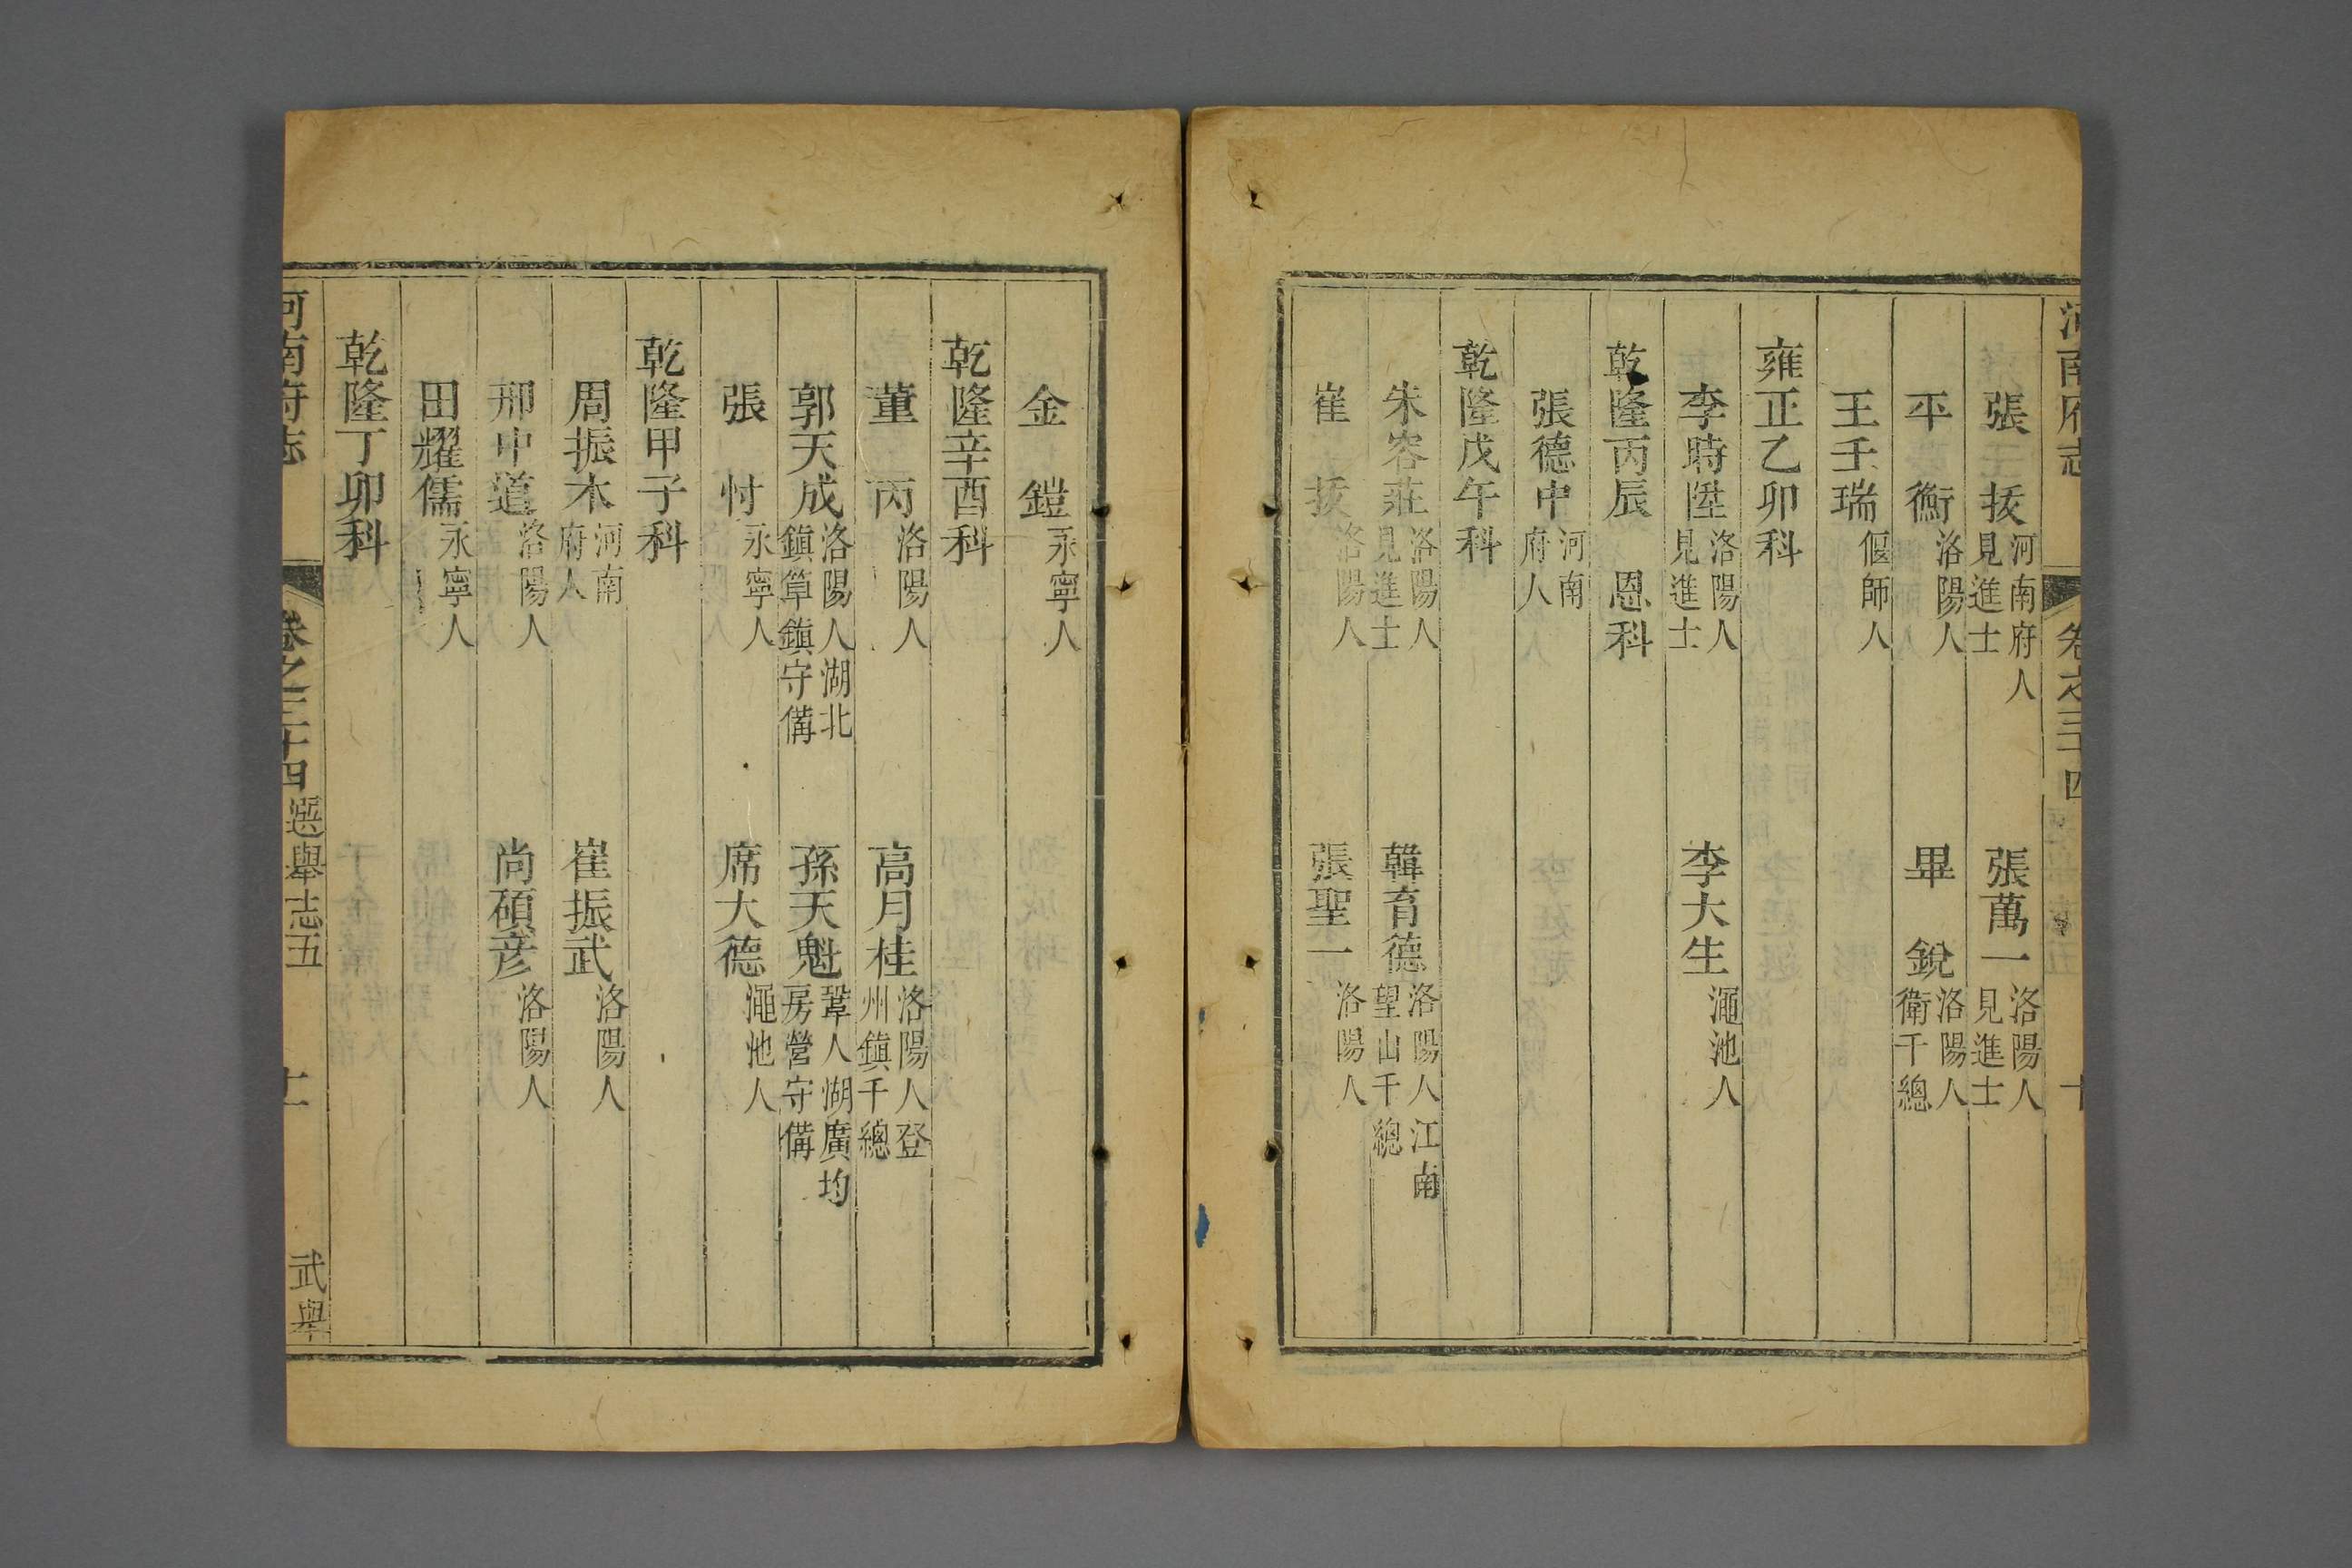 河南府志 卷之三十四 十
張拔 河南府人見進士 張萬一 洛陽人見進士
平衡 洛陽人 畢銳 洛陽人衛千總
王壬瑞 偃師人
雍正乙卯科
李時陞 洛陽人見進士 李大生 澠池人
乾隆丙辰恩科
張德中 河南府人
乾隆戊午科
朱容莊 洛陽人見進士 韓育德 洛陽人江南望山千總
崔拔 洛陽人 張聖一 洛陽人
金鎧 永寧人
乾隆辛酉科
董丙 洛陽人 高月桂 洛陽人登州鎮千總
郭天成 洛陽人湖北鎮筸鎮守備 孫天魁 鞏人湖廣均房營守備
張忖 永寧人 席大德 澠池人
乾隆甲子科
周振木 河南府人 崔振武 洛陽人
邢中道 洛陽人 尚碩彦 洛陽人
田耀儒 永寧人
乾隆丁卯科
河南府志 卷之三十四 選舉志五 十一 武舉